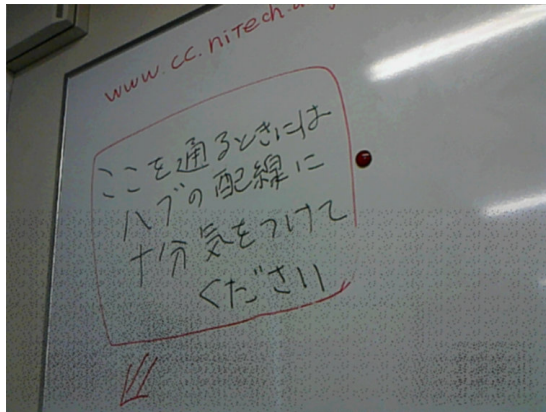 www.cc.nitech.
ここを通るときには
ハブの配線に
十分気をつけて
ください